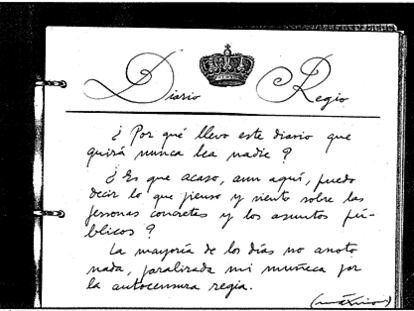 Diario Regio
¿Por qué llevo este diario que
quizá nunca lea nadie?
¿Es que acaso, aun aquí, puedo
decir lo que pienso y siento sobre las
personas concretas y los asuntos pú-
blicos?
La mayoría de los días no anoto
nada, paralizada mi muñeca por
la autocensura regia.
(máximo)